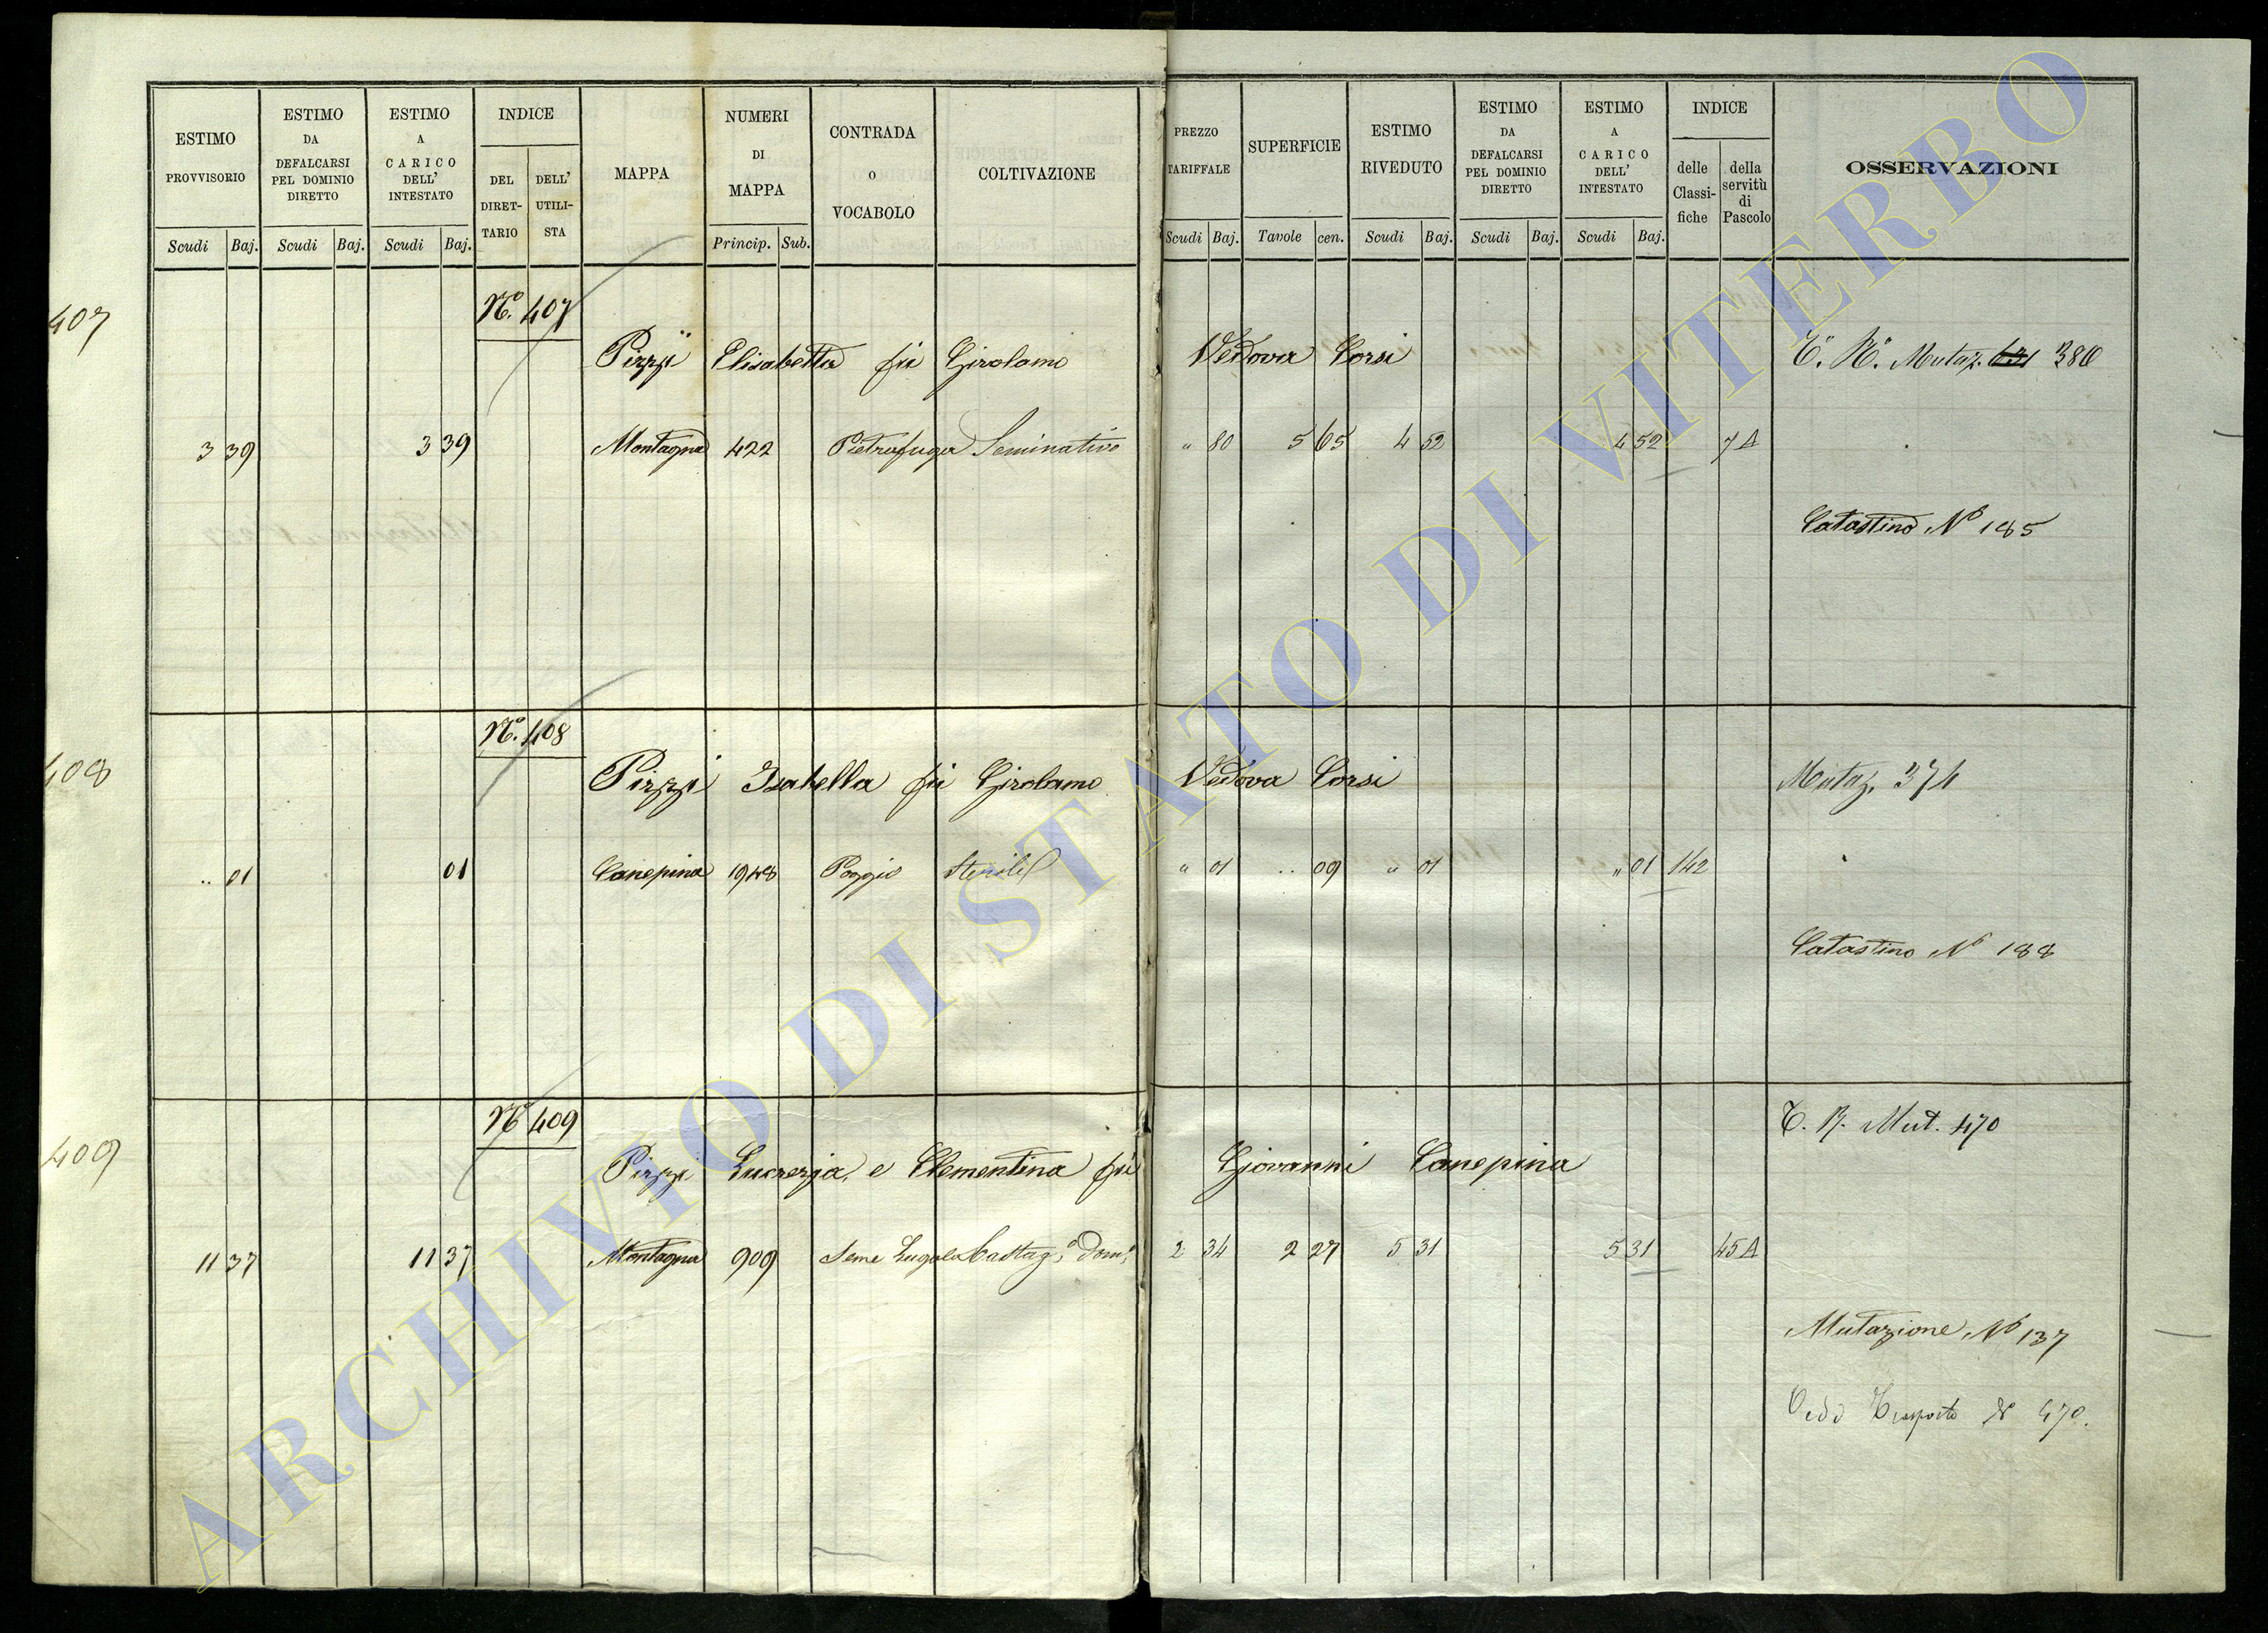 ESTIMO PROVVISORIO
ESTIMO DA DEFALCARSI PEL DOMINIO DIRETTO
ESTIMO A CARICO DELL' INTESTATO
INDICE
DEL DIRET-TARIO
DELL' UTILI-STA
MAPPA
NUMERI DI MAPPA
CONTRADA O VOCABOLO
COLTIVAZIONE
PREZZO TARIFFALE
SUPERFICIE
ESTIMO RIVEDUTO
ESTIMO DA DEFALCARSI PEL DOMINIO DIRETTO
ESTIMO A CARICO DELL' INTESTATO
INDICE
delle Classi-fiche
della servitù di Pascolo
OSSERVAZIONI
Scudi Baj. Scudi Baj. Scudi Baj. Princip. Sub. Scudi Baj. Tavole cen. Scudi Baj. Scudi Baj. Scudi Baj.
407
Nº. 407
Pizzi Elisabetta fu Girolamo Vedova Corsi T. R. Mutaz. 386
3 39 3 39 Montagna 422 Pietrafuga Seminativo " 80 5 65 4 52 4 52 7 A
Catastino Nº 185
408
Nº. 408
Pizzi Isabella fu Girolamo Vedova Corsi Mutaz. 374
.. 01 01 Canepina 1948 Poggio Sterile " 01 .. 09 " 01 " 01 142
Catastino Nº 188
409
Nº 409
T. R. Mut. 470
Pizzi Lucrezia, e Clementina fu Giovanni Canepina
11 37 11 37 Montagna 909 Castag.º Dom.º 2 34 2 27 5 31 5 31 45 A
Mutazione Nº 137
Trasporto Nº 470.
ARCHIVIO DI STATO DI VITERBO